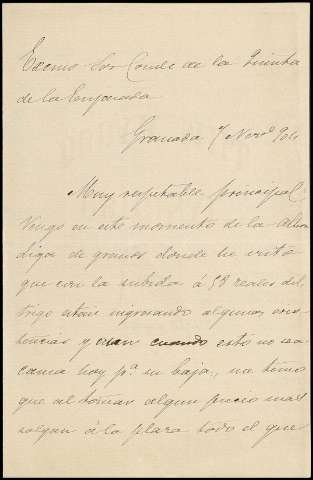 Excmo Sor Conde de la Quinta
de la Enjarada
Granada 7 Novre 904
Muy respetable principal,
Vengo en este momento de la Alhon
diga de granos donde he visto
que con la subida á 58 reales del
trigo están ingresando algunas exis
tencias y cuando esto no sea
causa hoy pa. su baja, me temo
que al tomar algun precio mas
salgan á la plaza todo el que